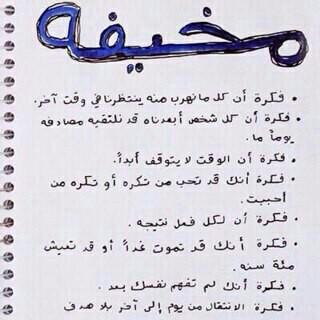 مخيفه
• فكرة أن كل ما نهرب منه ينتظرنا في وقت آخر.
• فكرة أن كل شخص أبعدناه قد نلتقيه مصادفه
يوماً ما.
• فكرة أن الوقت لا يتوقف أبداً.
• فكرة أنك قد تحب من تكره أو تكره من
أحببت.
• فكرة أن لكل فعل نتيجه.
• فكرة أنك قد تموت غداً أو قد تعيش
مئة سنه.
• فكرة أنك لم تفهم نفسك بعد.
• فكرة الانتقال من يوم إلى آخر بلا هدف